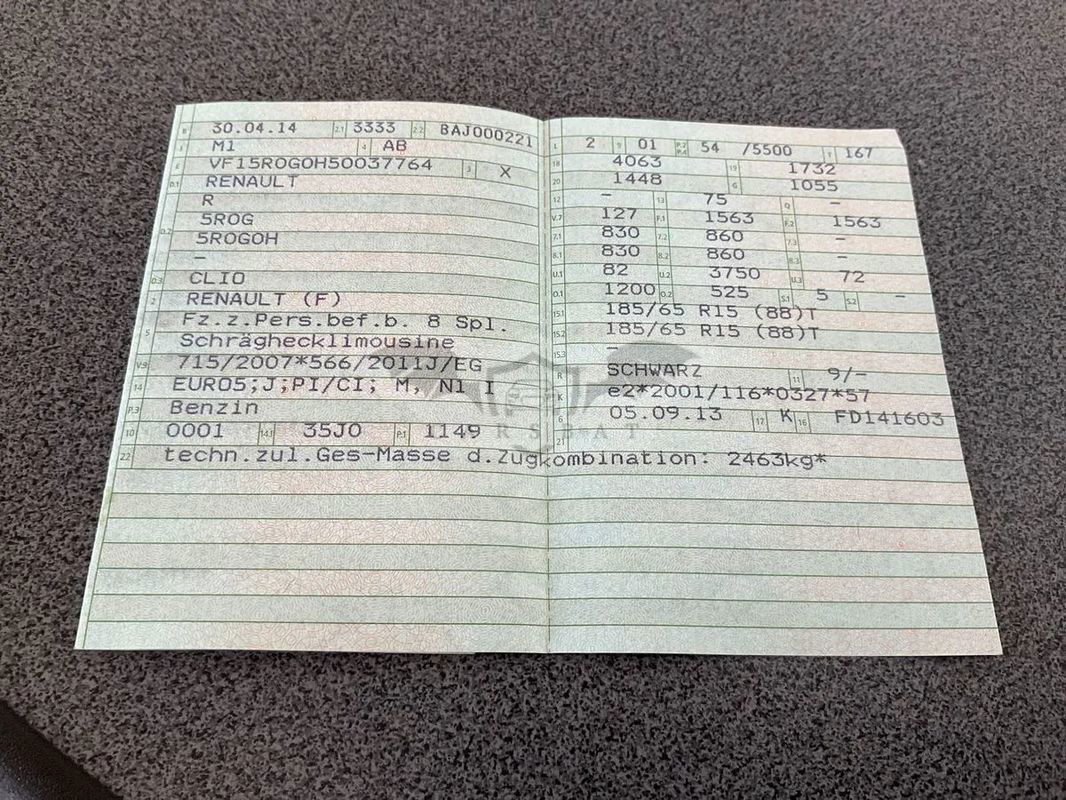 B 30.04.14 2.1 3333 2.2 BAJ000221
J M1 4 AB
E VF15R0G0H50037764 3 X
D.1 RENAULT
R
D.2 5R0G
5R0G0H
-
D.3 CLIO
2 RENAULT (F)
5 Fz.z.Pers.bef.b. 8 Spl.
Schräghecklimousine
V.9 715/2007*566/2011J/EG
14 EURO5;J;PI/CI; M, N1 I
P.3 Benzin
10 0001 14.1 35J0 P.1 1149
22 techn.zul.Ges-Masse d.Zugkombination: 2463kg*
L 2 9 01 P.2 P.4 54 /5500 T 167
18 4063 19 1732
20 1448 G 1055
12 - 13 75 Q -
V.7 127 F.1 1563 F.2 1563
7.1 830 7.2 860 7.3 -
8.1 830 8.2 860 8.3 -
U.1 82 U.2 3750 U.3 72
O.1 1200 O.2 525 S.1 5 S.2 -
15.1 185/65 R15 (88)T
15.2 185/65 R15 (88)T
15.3 -
R SCHWARZ 11 9/-
K e2*2001/116*0327*57
6 05.09.13 17 K 16 FD141603
21